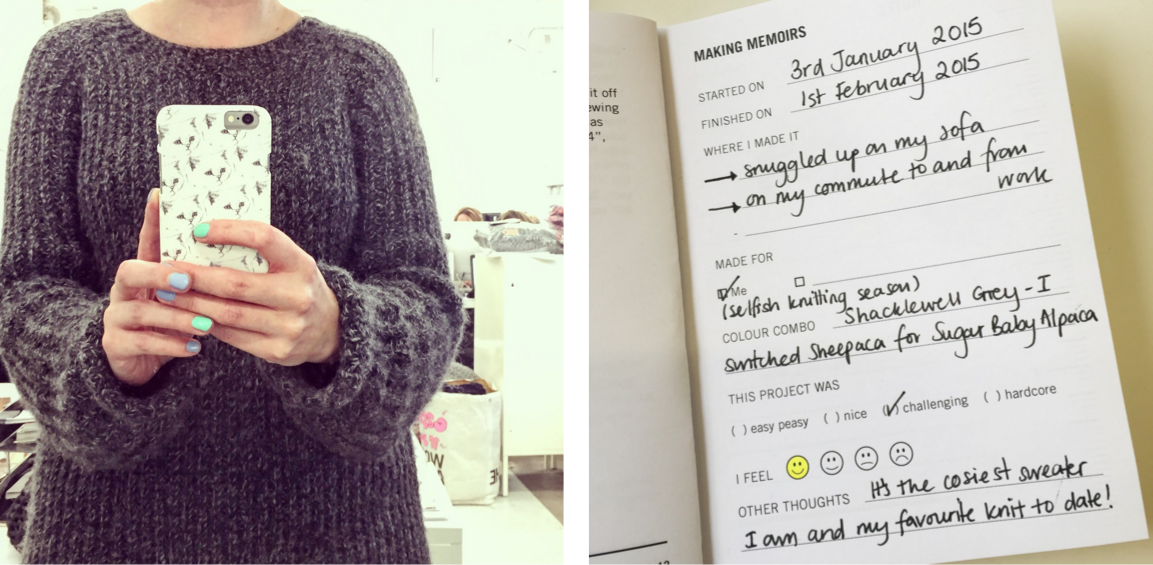 OW
it off
ewing
as
4”,
MAKING MEMOIRS
STARTED ON 3rd January 2015
FINISHED ON 1st February 2015
WHERE I MADE IT
→ snuggled up on my sofa
→ on my commute to and from
work
MADE FOR
Me
(selfish knitting season)
COLOUR COMBO Shacklewell Grey - I
switched Sheepaca for Sugar Baby Alpaca
THIS PROJECT WAS
( ) easy peasy ( ) nice (✓) challenging ( ) hardcore
I FEEL
OTHER THOUGHTS It's the cosiest sweater
I am and my favourite knit to date!